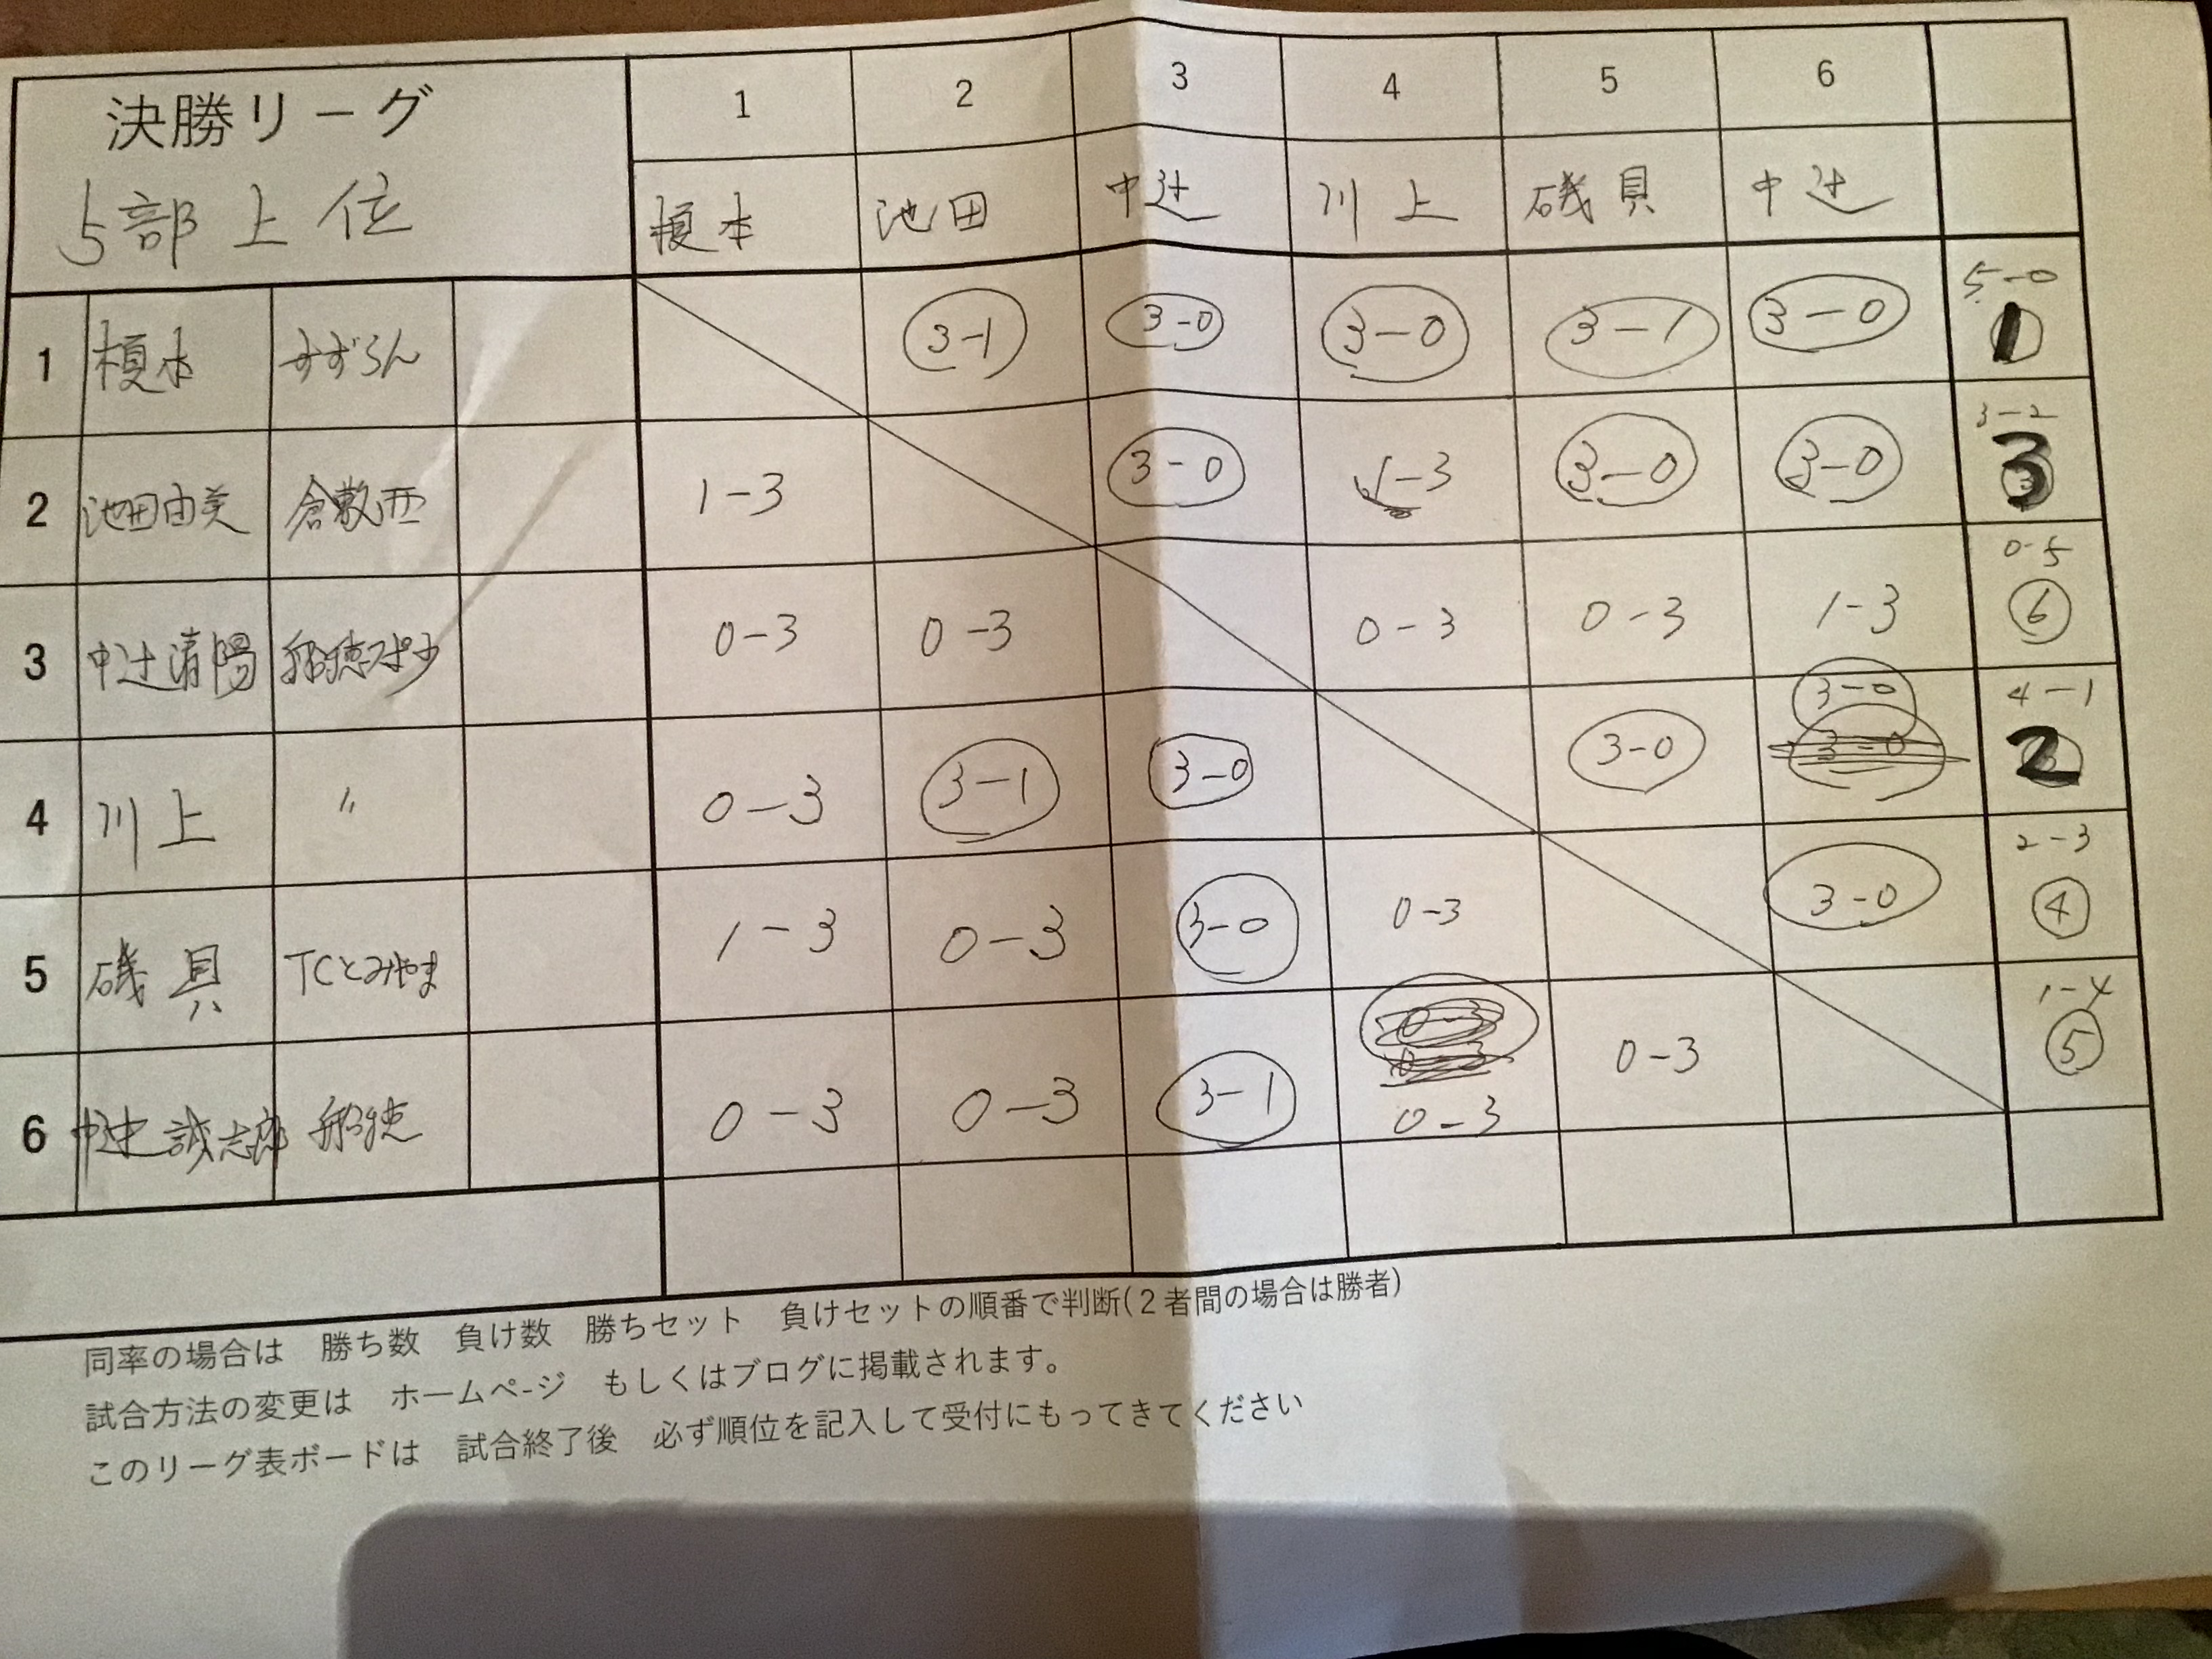 決勝リーグ 1 2 3 4 5 6
5部上位 榎本 池田 中辻 川上 磯貝 中辻
1 榎本 すずらん 3-1 3-0 3-0 3-1 3-0 5-0 1
2 池田由美 倉敷西 1-3 3-0 1-3 3-0 3-0 3-2 3
3 中辻清陽 0-3 0-3 0-3 0-3 1-3 0-5 6
4 川上 〃 0-3 3-1 3-0 3-0 3-0 3-0 4-1 2
5 磯貝 TCとみやま 1-3 0-3 3-0 0-3 3-0 2-3 4
6 中辻誠志郎 0-3 0-3 3-1 0-3 0-3 0-3 0-3 1-4 5
同率の場合は 勝ち数 負け数 勝ちセット 負けセットの順番で判断(2者間の場合は勝者)
試合方法の変更は ホームページ もしくはブログに掲載されます。
このリーグ表ボードは 試合終了後 必ず順位を記入して受付にもってきてください